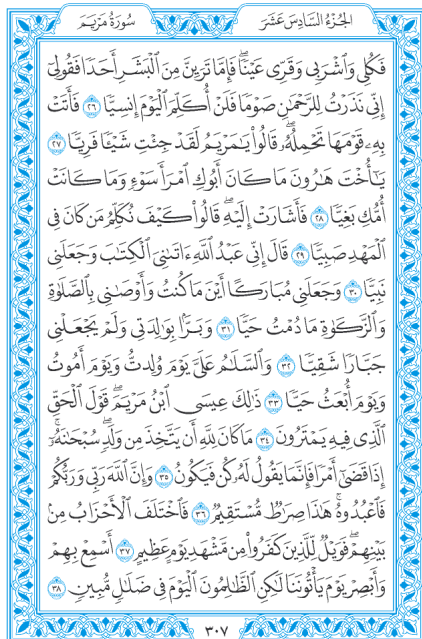 الجُزْءُ السَّادِسَ عَشَرَ
سُورَةُ مَرْيَمَ
فَكُلِى وَٱشْرَبِى وَقَرِّى عَيْنًا ۖ فَإِمَّا تَرَيِنَّ مِنَ ٱلْبَشَرِ أَحَدًا فَقُولِىٓ
إِنِّى نَذَرْتُ لِلرَّحْمَٰنِ صَوْمًا فَلَنْ أُكَلِّمَ ٱلْيَوْمَ إِنسِيًّا ٢٦ فَأَتَتْ
بِهِۦ قَوْمَهَا تَحْمِلُهُۥ ۖ قَالُوا۟ يَٰمَرْيَمُ لَقَدْ جِئْتِ شَيْـًٔا فَرِيًّا ٢٧
يَٰٓأُخْتَ هَٰرُونَ مَا كَانَ أَبُوكِ ٱمْرَأَ سَوْءٍ وَمَا كَانَتْ
أُمُّكِ بَغِيًّا ٢٨ فَأَشَارَتْ إِلَيْهِ ۖ قَالُوا۟ كَيْفَ نُكَلِّمُ مَن كَانَ فِى
ٱلْمَهْدِ صَبِيًّا ٢٩ قَالَ إِنِّى عَبْدُ ٱللَّهِ ءَاتَىٰنِىَ ٱلْكِتَٰبَ وَجَعَلَنِى
نَبِيًّا ٣٠ وَجَعَلَنِى مُبَارَكًا أَيْنَ مَا كُنتُ وَأَوْصَٰنِى بِٱلصَّلَوٰةِ
وَٱلزَّكَوٰةِ مَا دُمْتُ حَيًّا ٣١ وَبَرًّۢا بِوَٰلِدَتِى وَلَمْ يَجْعَلْنِى
جَبَّارًا شَقِيًّا ٣٢ وَٱلسَّلَٰمُ عَلَىَّ يَوْمَ وُلِدتُّ وَيَوْمَ أَمُوتُ
وَيَوْمَ أُبْعَثُ حَيًّا ٣٣ ذَٰلِكَ عِيسَى ٱبْنُ مَرْيَمَ ۚ قَوْلَ ٱلْحَقِّ
ٱلَّذِى فِيهِ يَمْتَرُونَ ٣٤ مَا كَانَ لِلَّهِ أَن يَتَّخِذَ مِن وَلَدٍ ۖ سُبْحَٰنَهُۥٓ ۚ
إِذَا قَضَىٰٓ أَمْرًا فَإِنَّمَا يَقُولُ لَهُۥ كُن فَيَكُونُ ٣٥ وَإِنَّ ٱللَّهَ رَبِّى وَرَبُّكُمْ
فَٱعْبُدُوهُ ۚ هَٰذَا صِرَٰطٌ مُّسْتَقِيمٌ ٣٦ فَٱخْتَلَفَ ٱلْأَحْزَابُ مِنۢ
بَيْنِهِمْ ۖ فَوَيْلٌ لِّلَّذِينَ كَفَرُوا۟ مِن مَّشْهَدِ يَوْمٍ عَظِيمٍ ٣٧ أَسْمِعْ بِهِمْ
وَأَبْصِرْ يَوْمَ يَأْتُونَنَا ۖ لَٰكِنِ ٱلظَّٰلِمُونَ ٱلْيَوْمَ فِى ضَلَٰلٍ مُّبِينٍ ٣٨
٣٠٧